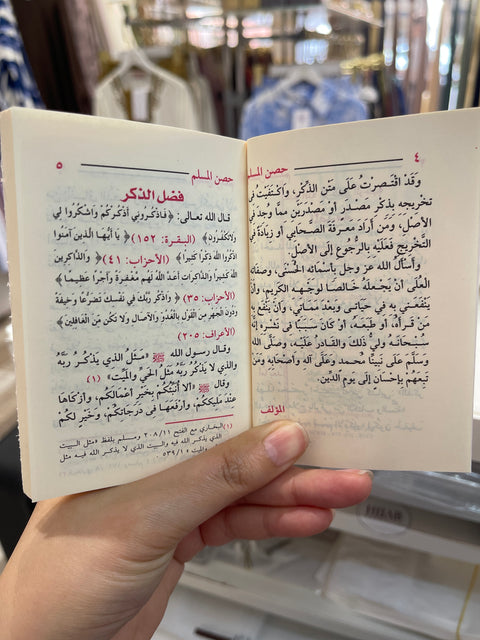 ٤
حصن المسلم
وقد اقتصرتُ على متن الذكر، واكتفيت في
تخريجه بذكر مصدر أو مصدرين مما وُجد في
الأصل، ومن أراد معرفة الصحابي أو زيادة في
التخريج فعليه بالرجوع إلى الأصل.
وأسأل الله عز وجل بأسمائه الحُسنى، وصفاته
العُلى أن يجعله خالصًا لوجهه الكريم، وأن
ينفعني به في حياتي وبعد مماتي، وأن ينفع به
من قرأه، أو طبعه، أو كان سببًا في نشره إنه
سبحانه وليُّ ذلك والقادر عليه، وصلى الله
وسلم على نبينا محمد وعلى آله وأصحابه ومن
تبعهم بإحسان إلى يوم الدين.
المؤلف
حصن المسلم
٥
فضل الذكر
قال الله تعالى: ﴿فَاذْكُرُونِي أَذْكُرْكُمْ وَاشْكُرُوا لِي
وَلَا تَكْفُرُونِ﴾ (البقرة: ١٥٢) ﴿يَا أَيُّهَا الَّذِينَ آمَنُوا
اذْكُرُوا اللَّهَ ذِكْرًا كَثِيرًا﴾ (الأحزاب: ٤١) ﴿وَالذَّاكِرِينَ
اللَّهَ كَثِيرًا وَالذَّاكِرَاتِ أَعَدَّ اللَّهُ لَهُم مَّغْفِرَةً وَأَجْرًا عَظِيمًا﴾
(الأحزاب: ٣٥) ﴿وَاذْكُر رَّبَّكَ فِي نَفْسِكَ تَضَرُّعًا وَخِيفَةً
وَدُونَ الْجَهْرِ مِنَ الْقَوْلِ بِالْغُدُوِّ وَالْآصَالِ وَلَا تَكُن مِّنَ الْغَافِلِينَ﴾
(الأعراف: ٢٠٥)
وقال رسول الله ﷺ «مَثَلُ الذي يَذْكُرُ ربَّهُ
والذي لا يَذْكُرُ ربَّهُ مَثَلُ الحيِّ والميِّتِ» (١)
وقال ﷺ «ألا أُنَبِّئُكُم بخيرِ أعمالِكُم، وأزكاها
عند مليكِكُم، وأرفعِها في درجاتِكُم، وخيرٍ لكُم
(١) البخاري مع الفتح ٢٠٨/١١ ومسلم بلفظ «مثل البيت
الذي يذكر الله فيه والبيت الذي لا يذكر الله فيه مثل
والميت» ٥٣٩/١